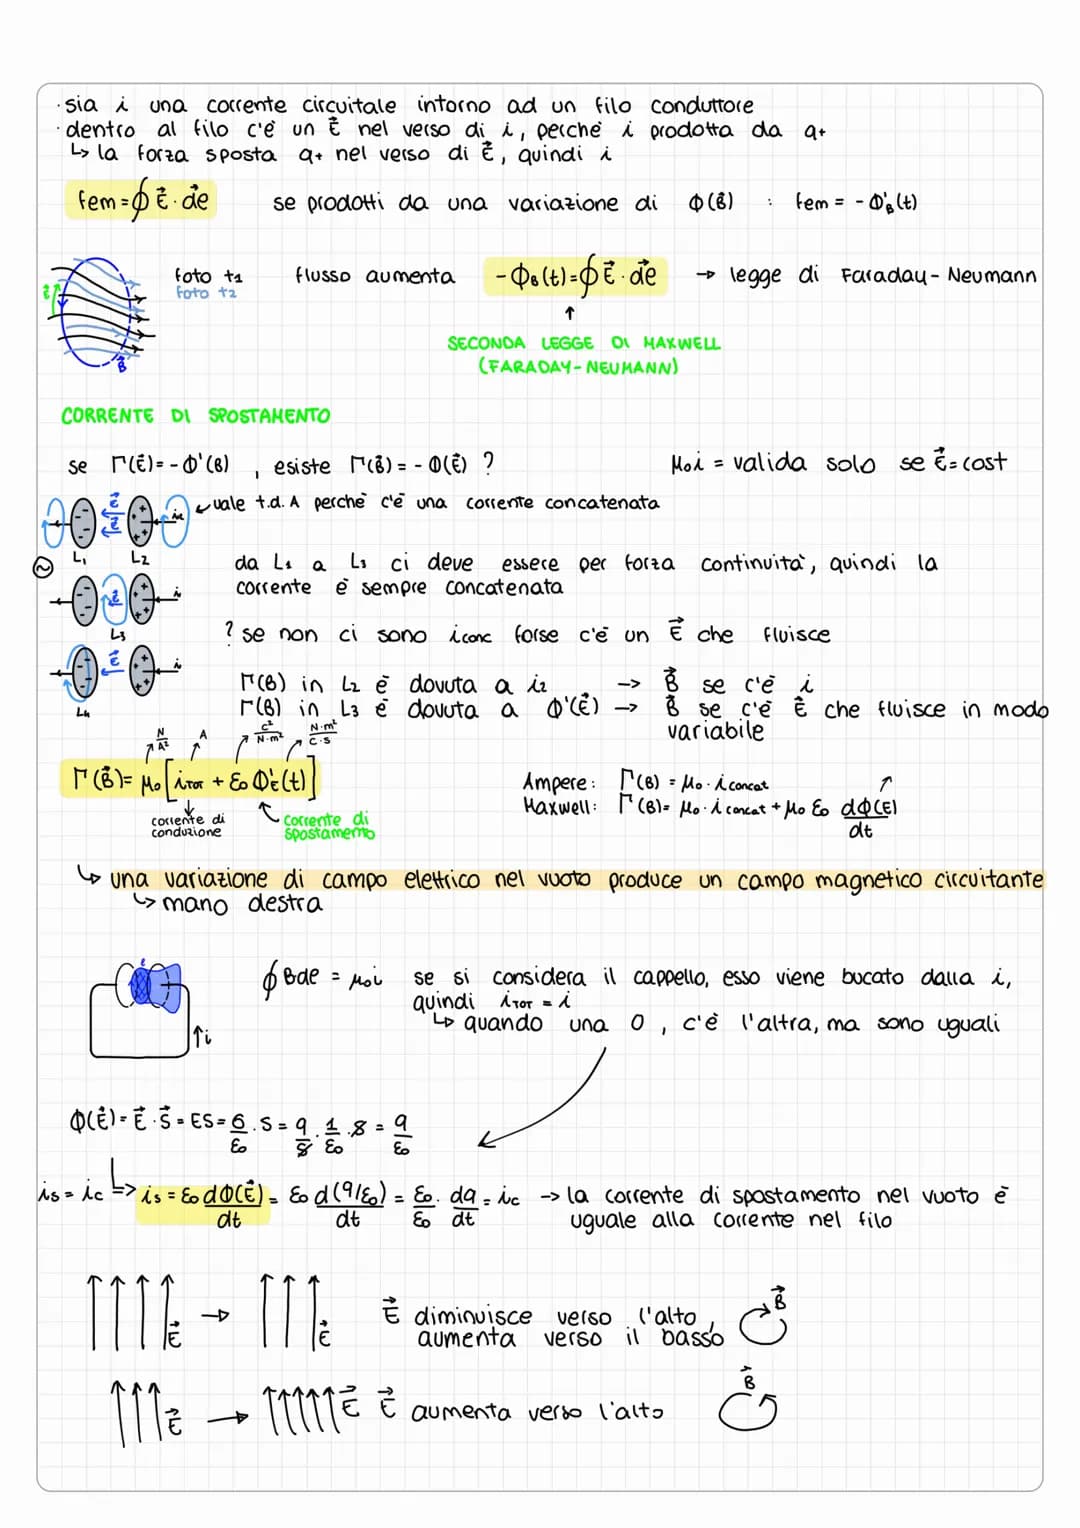 · sia i una corrente circuitale intorno ad un filo conduttore
· dentro al filo c'è un E⃗ nel verso di i, perchè i prodotta da q+
↳ la forza sposta q+ nel verso di E⃗, quindi i
fem = ∮ E⃗ · dℓ⃗ se prodotti da una variazione di Φ(B⃗) : fem = - Φ'B(t)
foto t1 flusso aumenta -ΦB(t) = ∮ E⃗ · dℓ⃗ → legge di Faraday-Neumann
foto t2
E⃗
B⃗
↑
SECONDA LEGGE DI MAXWELL
(FARADAY-NEUMANN)
CORRENTE DI SPOSTAMENTO
se Γ(E⃗) = - Φ'(B) , esiste Γ(B⃗) = - Φ(E⃗) ? μ0i = valida solo se E⃗ = cost
vale t.d. A perchè c'è una corrente concatenata
E⃗ E⃗
L1 L2
da L1 a L3 ci deve essere per forza continuità, quindi la
corrente è sempre concatenata
E⃗ i
L3
? se non ci sono iconc forse c'è un E⃗ che fluisce
E⃗ i
L4
Γ(B) in L2 è dovuta a i2 → B⃗ se c'è i
Γ(B) in L3 è dovuta a Φ'(E⃗) → B⃗ se c'è E⃗ che fluisce in modo
variabile
N/A² A C²/N·m² N·m²/C·s
Γ(B⃗) = μ0 [iTOT + ε0 Φ'E(t)]
corrente di
conduzione
corrente di
spostamento
Ampere: Γ(B) = μ0 · i concat
Maxwell: Γ(B) = μ0 · i concat + μ0 ε0 dΦ(E)/dt
↳ una variazione di campo elettrico nel vuoto produce un campo magnetico circuitante
↳ mano destra
∮ Bdℓ = μ0i se si considera il cappello, esso viene bucato dalla i,
quindi iTOT = i
↳ quando una 0 , c'è l'altra, ma sono uguali
↑i
Φ(E⃗) = E⃗ · S⃗ = ES = σ/ε0 · S = q/S · 1/ε0 · S = q/ε0
is = ic ↳ is = ε0 dΦ(E⃗)/dt = ε0 d(q/ε0)/dt = ε0/ε0 · dq/dt = ic → la corrente di spostamento nel vuoto è
uguale alla corrente nel filo
E⃗ → E⃗ E⃗ diminuisce verso l'alto, B⃗
aumenta verso il basso
E⃗ → E⃗ E⃗ aumenta verso l'alto B⃗